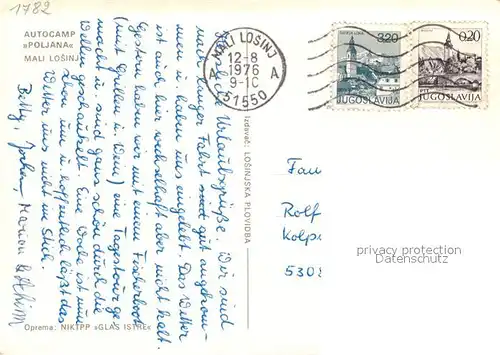 1782
AUTOCAMP
»POLJANA«
MALI LOŠINJ
MALI LOŠINJ
12-8
1976
9-10
A A
51550
3,20
JUGOSLAVIJA
0,20
JUGOSLAVIJA
Izdavač: LOŠINJSKA PLOVIDBA
die Urlaubsgrüße. Wir sind
nach langer Fahrt sind gut angekom-
men u. haben uns eingelebt. Das Wetter
ist hier wechselhaft aber nicht kalt.
Gestern haben wir mit einem Fischerboot
(mit Grillen u. Wein) eine Tagestour ge-
macht u. sind ganz schön durch die
Wellen geschaukelt. Eine Woche ist nun
schon um u. hoffentlich läßt das
Wetter uns nicht im Stich.
Betty, Jochen, Marion & Achim
Fam
Rolf
Kolp
5308
privacy protection
Datenschutz
Oprema: NIKTPP »GLAS ISTRE«